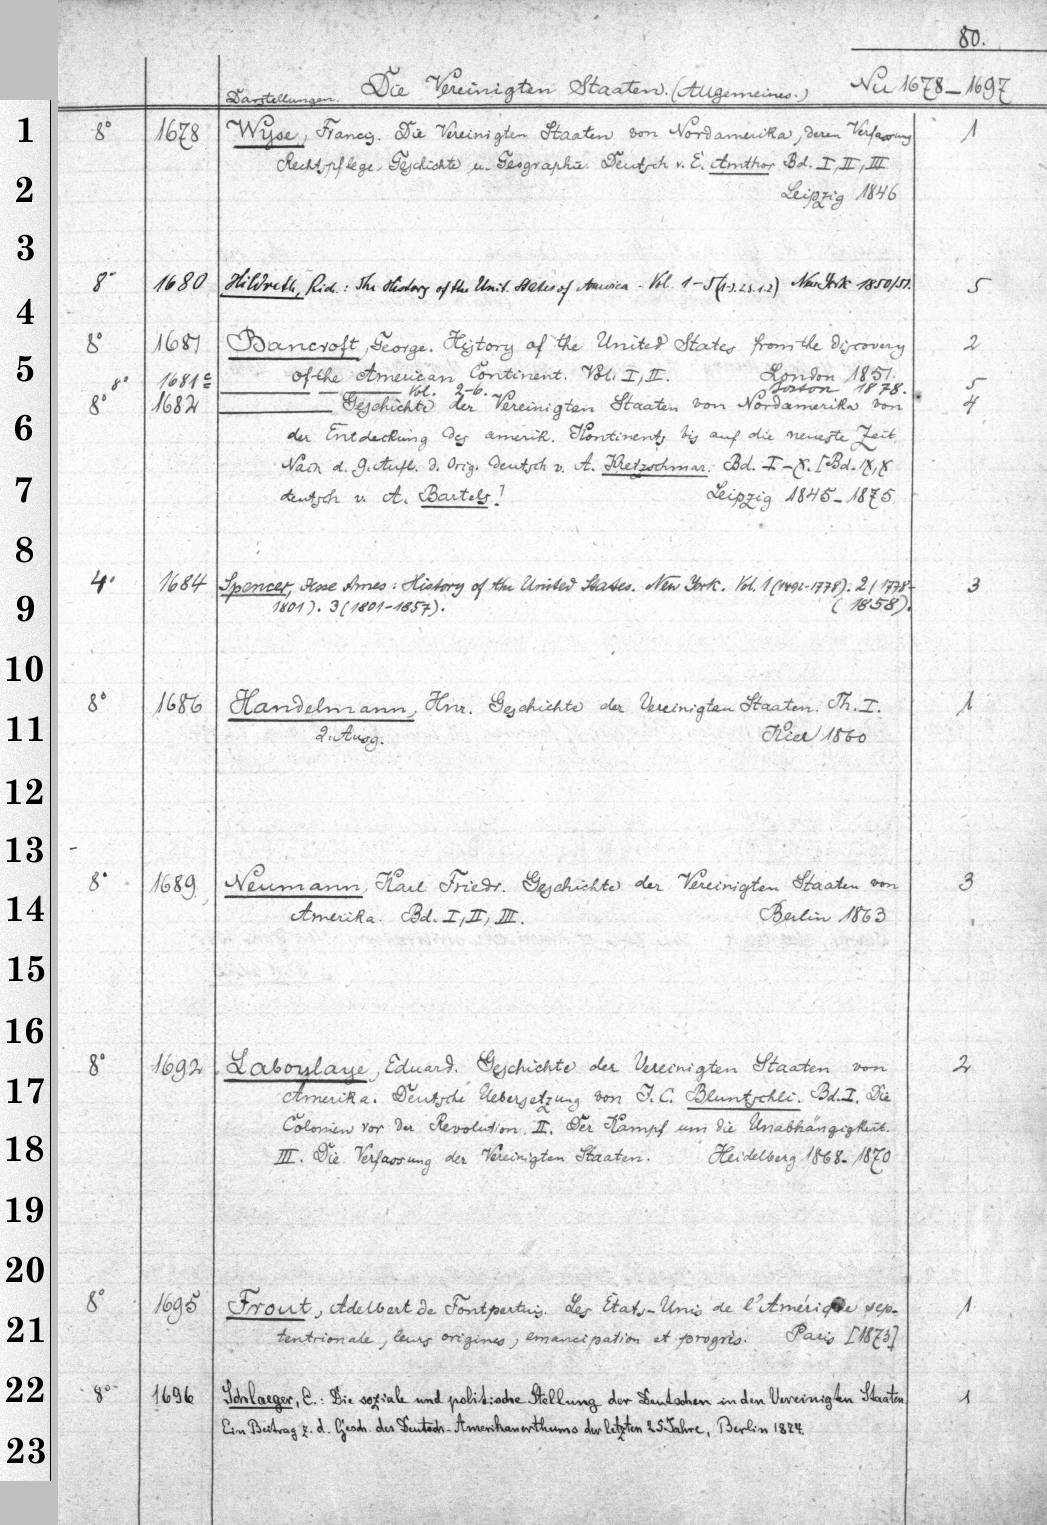 80.
Darstellungen. Die Vereinigten Staaten. (Allgemeines.) Nu 1678–1697
1 8° 1678 Wyse, Francis. Die Vereinigten Staaten von Nordamerika, deren Verfassung 1
Rechtspflege, Geschichte u. Geographie. Deutsch v. E. Amthor Bd. I, II, III
2 Leipzig 1846
3
8° 1680 Hildreth, Rich.: The History of the Unit. States of America - Vol. 1–5 New York 1850/51. 5
4
8° 1681 Bancroft, George. History of the United States from the discovery 2
5 of the American Continent. Vol. I, II. London 1851.
8° 1681c Vol. 2–6. Boston 1878. 5
8° 1682 Geschichte der Vereinigten Staaten von Nordamerika von 4
6 der Entdeckung des amerik. Kontinents bis auf die neueste Zeit.
Nach d. 9. Aufl. d. Orig. deutsch v. A. Kretzschmar. Bd. I–X. [Bd. IX, X
7 deutsch v. A. Bartels!] Leipzig 1845–1875
8
4° 1684 Spencer, Jesse Ames: History of the United States. New York. Vol. 1 (1492-1778). 2 (1778- 3
9 1801). 3 (1801–1857). (1858).
10
8° 1686 Handelmann, Hnr. Geschichte der Vereinigten Staaten. Th. I. 1
11 2. Ausg. Kiel 1860
12
13
8° 1689 Neumann, Karl Friedr. Geschichte der Vereinigten Staaten von 3
14 Amerika. Bd. I, II, III. Berlin 1863
15
16
8° 1692 Laboulaye, Eduard. Geschichte der Vereinigten Staaten von 2
17 Amerika. Deutsche Uebersetzung von J. C. Bluntschli. Bd. I. Die
Colonien vor der Revolution. II. Der Kampf um die Unabhängigkeit.
18 III. Die Verfassung der Vereinigten Staaten. Heidelberg 1868–1870
19
20
8° 1695 Frout, Adelbert de Fontpertuis. Les États-Unis de l'Amérique sep- 1
21 tentrionale, leurs origines, emancipation et progrès. Paris [1873]
22 8° 1696 Schlaeger, E.: Die soziale und politische Stellung der Deutschen in den Vereinigten Staaten. 1
Ein Beitrag z. d. Gesch. des Deutsch-Amerikanerthums der letzten 25 Jahre, Berlin 1874
23